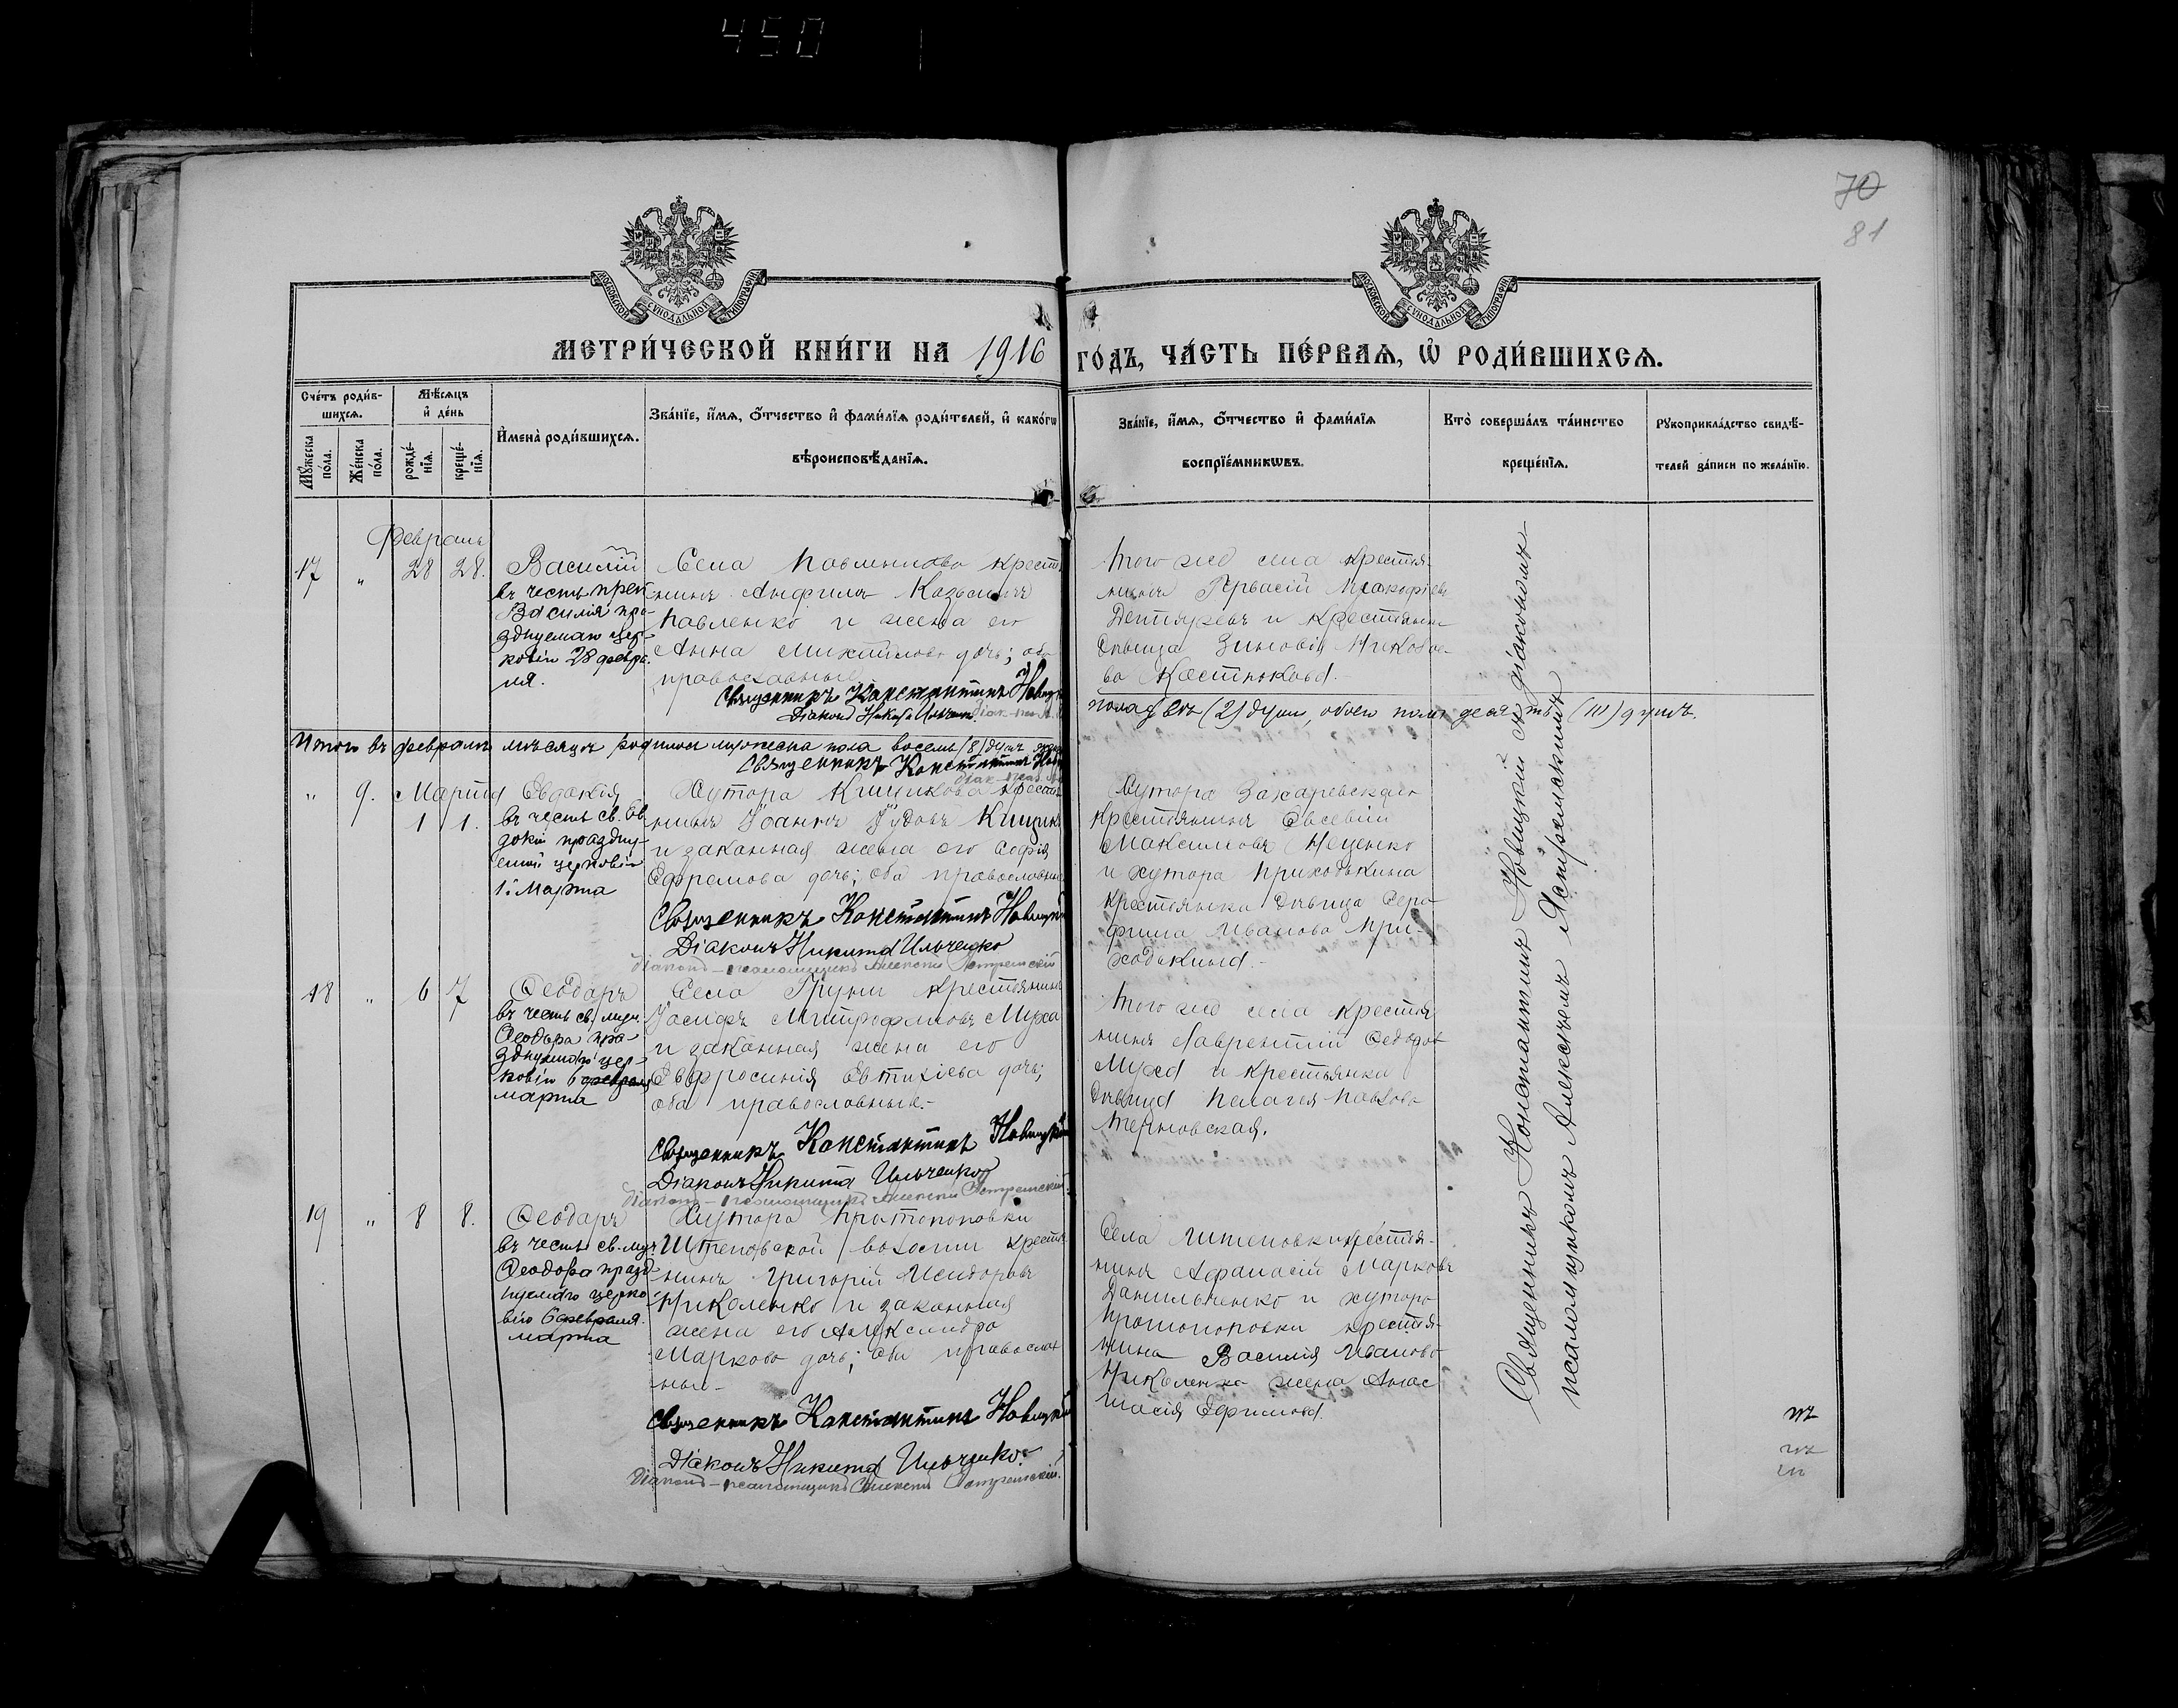 450
70
81
МОСКОВСКОЙ СѴНОДАЛЬНОЙ ТИПОГРАФІИ
МОСКОВСКОЙ СѴНОДАЛЬНОЙ ТИПОГРАФІИ
МЕТРИ́ЧЕСКОЙ КНИ́ГИ НА 1916
ГО́ДЪ, ЧА́СТЬ ПЕ́РВАѦ, Ѡ҆ РОДИ́ВШИХСѦ.
Сче́тъ роди́в-
шихсѧ.
Мѣ́сѧцъ
и҆ де́нь
Мꙋ́жеска по́ла.
Же́нска по́ла.
рожде́-
нїѧ.
креще́-
нїѧ.
И҆мена̀ роди́вшихсѧ.
Зва́нїе, и҆́мѧ, о҆́тчество и҆ фами́лїѧ роди́телей, и҆ како́гѡ
вѣроисповѣ́данїѧ.
Зва́нїе, и҆́мѧ, о҆́тчество и҆ фами́лїѧ
воспрїе́мникѡвъ.
Кто̀ соверша́лъ та́инство
креще́нїѧ.
Рꙋкоприкла́дство свидѣ́-
телей за́писи по жела́нїю.
Февраль
17 " 28 28.
Василій
въ честь преп
Василія пра-
зднуемаго цер-
ковію 28 февра-
ля.
Села Павленково крест
нинъ Анфилъ Козьминъ
Павленко и жена его
Анна Михайлова дочь; оба
православные
Священникъ Константинъ Новиц
Діаконъ Никита Ильченко
Того же села крестья-
нинъ Гервасій Прокофіевъ
Дептяревъ и крестьянка
дѣвица Зиновія Николае-
ва Костюкова.
Итого въ февралѣ мѣсяцѣ родилось мужеска пола восемь (8) душъ
пола двѣ (2) души, обоего пола десять (10) душъ.
Священникъ Константинъ Нов
" 9. Марта
1 1.
Евдокія
въ честь св. Ев
докіи праздну-
емой церковію
1. Марта
Хутора Кищикова крест
нинъ Іоаннъ Іудовъ Кищикъ
и законная жена его Софія
Ефремова дочь; оба православные
Священникъ Константинъ Новицкі
Діаконъ Никита Ильченко
Діаконъ-псаломщикъ Алексѣй
Хутора Захаревскаго
крестьянинъ Евсевій
Максимовъ Неценко
и хутора Приходькина
крестьянка дѣвица Сера-
фима Иванова При-
ходькина.-
18 " 6 7
Ѳеодоръ
въ честь св. муч.
Ѳеодора пра-
зднуемаго цер-
ковію 6 февраля
марта
Села Груни крестьянинъ
Іосифъ Митрофановъ Муха
и законная жена его
Евфросинія Евтихіева дочь;
оба православные.-
Священникъ Константинъ Новицкій
Діаконъ Никита Ильченко
Діаконъ-псаломщикъ Алексѣй
Того же села крестья
нинъ Лаврентій Ѳедоров
Муха и крестьянка
дѣвица Пелагея Павлова
Терновская.
19 " 8 8.
Ѳеодоръ
въ честь св. муч
Ѳеодора празд-
нуемаго церко-
вію 6 февраля.
марта
Хутора Протопоповки
Штеповской волости крестья
нинъ Григорій Исидоровъ
Николенко и законная
жена его Александра
Маркова дочь; оба православ
ные.-
Священникъ Константинъ Новицкій
Діаконъ Никита Ильченко.
Діаконъ-псаломщикъ Алексѣй
Села Штеповки крестья-
нинъ Афанасій Марковъ
Данильченко и хутора
Протопоповки крестья-
нина Василія Иванова
Николенка жена Анас
тасія Ефимова.
Священникъ Константинъ Новицкій съ діакономъ
псаломщикомъ Алексѣемъ